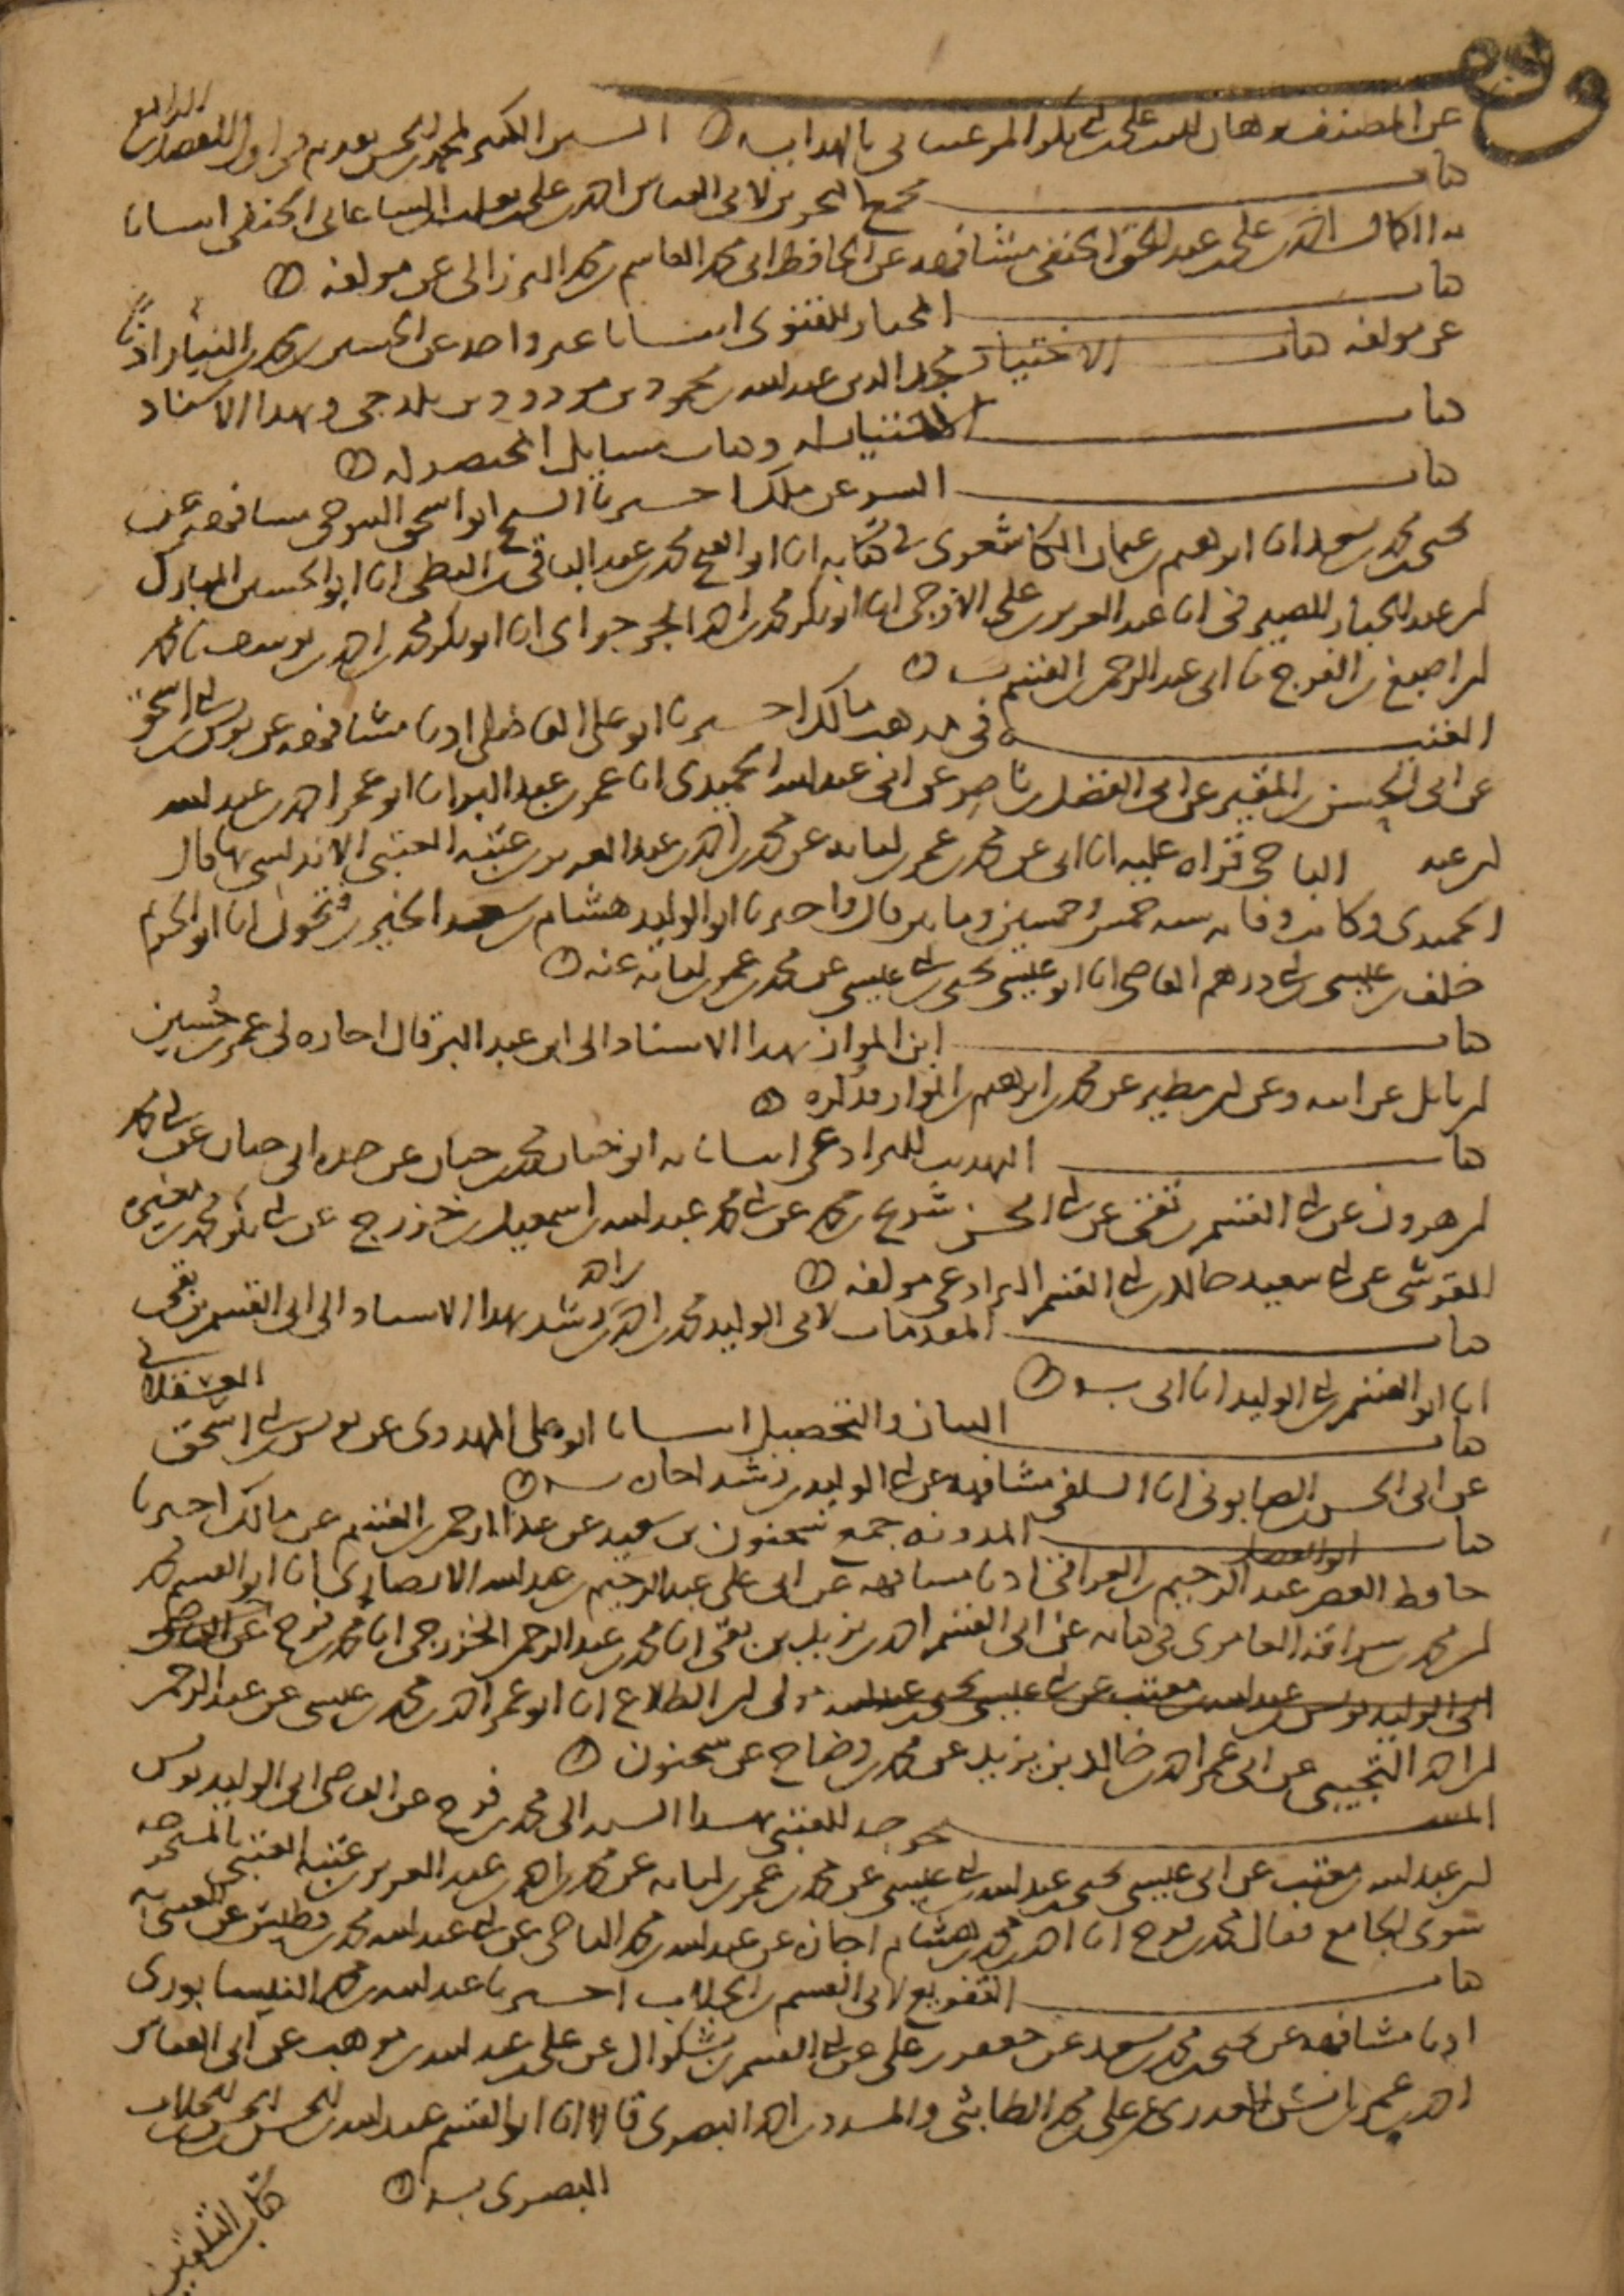 عن المصنف وكتاب علي بن أبي بكر المرغيناني بالهداية السير الكبير لمحمد بن الحسن
كتاب مجمع البحرين لأبي العباس أحمد بن علي الساعاتي الحنفي أنبأنا
به الكمال أحمد بن علي بن عبد الحق الحنفي مشافهة عن الحافظ أبي محمد القاسم بن محمد البرزالي عن مؤلفه
كتاب المختار للفتوى أنبأنا غير واحد عن
عن مؤلفه كتاب الاختيار مجد الدين عبد الله بن محمود بن مودود بن بلدجي وبهذا الاسناد
كتاب الاختيار له وكتاب مسايل المختصر له
كتاب السير عن ملك أخبرنا الشيخ أبو اسحق التنوخي مشافهة عن
يحيى بن محمد بن سعد انا ابرهيم بن عثمان الكاشغري في كتابه انا أبو الفتح محمد بن عبد الباقي بن البطي انا أبو الحسين المبارك
بن عبد الجبار الصيرفي انا عبد العزيز بن علي الأزجي انا أبو بكر محمد بن أحمد الجرجراي انا أبو بكر محمد بن أحمد بن يوسف نا محمد
بن اصبغ بن الفرج نا أبي عبد الرحمن بن القسم
العتبية في مذهب مالك أخبرنا أبو علي الفاضلي اذنا مشافهة عن يونس بن أبي اسحق
عن أبي الحسن بن المقير عن أبي الفضل بن ناصر عن أبي عبد الله الحميدي انا عمر بن عبد البر انا أبو عمر أحمد بن عبد الله
بن محمد الباجي قراه عليه انا أبي عن محمد بن عمر بن لبابة عن محمد بن أحمد بن عبد العزيز بن عتبة العتبي الاندلسي بها قال
الحميدي وكانت وفاته سنة خمس وخمسين ومايتين قال وأخبرنا أبو الوليد هشام بن سعيد الخير بن فتحون انا أبو الحزم
خلف بن عيسى بن أبي درهم القاضي انا أبو عيسى يحيى بن أبي عيسى عن محمد بن عمر بن لبابة عنه
كتاب ابن المواز بهذا الاسناد إلى ابن عبد البر قال اجازه لي عمر بن حسين
بن نابل عن أبيه وعن ابن مطير عن محمد بن ابرهيم بن المواز فذكره
كتاب التهذيب للبرادعي انبأنا به أبو حيان محمد بن حيان عن جده أبي حيان عن أبي محمد
بن هرون عن أبي القسم بن بقي عن أبي الحسن شريح بن محمد عن أبي محمد عبد الله بن اسمعيل بن خزرج عن أبي بكر محمد بن مغيرة
القرشي عن أبي سعيد خالد بن أبي القسم البرادعي مؤلفه
كتاب المقدمات لأبي الوليد محمد بن أحمد بن رشد بهذا الاسناد إلى أبي القسم بن بقي
انا أبو القسم بن أبي الوليد انا أبي به
كتاب البيان والتحصيل انبأنا أبو علي المهدوي عن يونس بن أبي اسحق العسقلاني
عن أبي الحسن بن الصابوني انا السلفي مشافهة عن أبي الوليد بن رشد اجازة به
كتاب المدونة جمع سحنون بن سعيد عن عبد الرحمن بن القسم عن مالك أخبرنا
حافظ العصر أبو الفضل عبد الرحيم بن العراقي اذنا مشافهة عن أبي علي عبد الرحيم بن عبد الله الانصاري انا أبو القسم محمد
بن محمد بن سراقة العامري في كتابه عن أبي القسم أحمد بن يزيد بن بقي انا محمد بن عبد الرحمن الخزرجي انا محمد بن فرج عن القاضي
أبي الوليد يونس بن عبد الله بن مغيث عن أبي عيسى يحيى بن عبد الله مولى ابن الطلاع انا أبو عمر أحمد بن محمد بن عيسى عن عبد الرحمن
بن أحمد التجيبي عن أبي عمر أحمد بن خالد بن يزيد عن محمد بن وضاح عن سحنون
المستخرجة للعتبي بهذا السند إلى محمد بن فرج عن القاضي أبي الوليد يونس
بن عبد الله بن مغيث عن أبي عيسى يحيى بن عبد الله بن أبي عيسى عن محمد بن عمر بن لبابة عن محمد بن أحمد بن عبد العزيز بن عتبة العتبي بالمستخرجة
سوى الجامع فقال محمد بن فرج انا أحمد بن محمد بن هشام اجازة عن عبد الله بن محمد الباجي عن أبي عبد الله محمد بن فطيس عن العتبي به
كتاب التفريع لأبي القسم بن الجلاب أخبرنا عبد الله بن محمد النيسابوري
اذنا مشافهة عن يحيى بن محمد بن سعد عن جعفر بن علي عن أبي القسم بن بشكوال عن علي بن عبد الله بن موهب عن أبي العباس
أحمد بن عمر بن أنس العذري عن علي بن محمد الطابثي والمسدد بن أحمد البصري قالا انا أبو القسم عبيد الله بن الحسن بن الجلاب
البصري به
كتاب التلقين